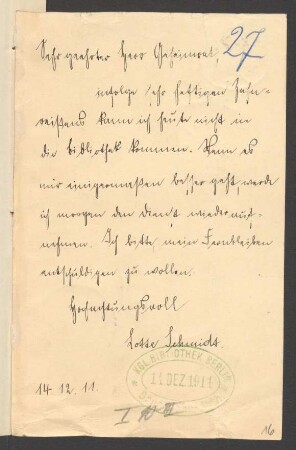 Sehr geehrter Herr Geheimrat,
27
infolge sehr heftigen Zahn-
reißens kann ich heute nicht in
die Bibliothek kommen. Wenn es
mir einigermaßen besser geht werde
ich morgen den Dienst wieder auf-
nehmen. Ich bitte mein Fernbleiben
entschuldigen zu wollen.
Hochachtungsvoll
Lotte Schmidt.
KGL. BIBLIOTHEK BERLIN
14 DEZ 1911
14.12.11.
16